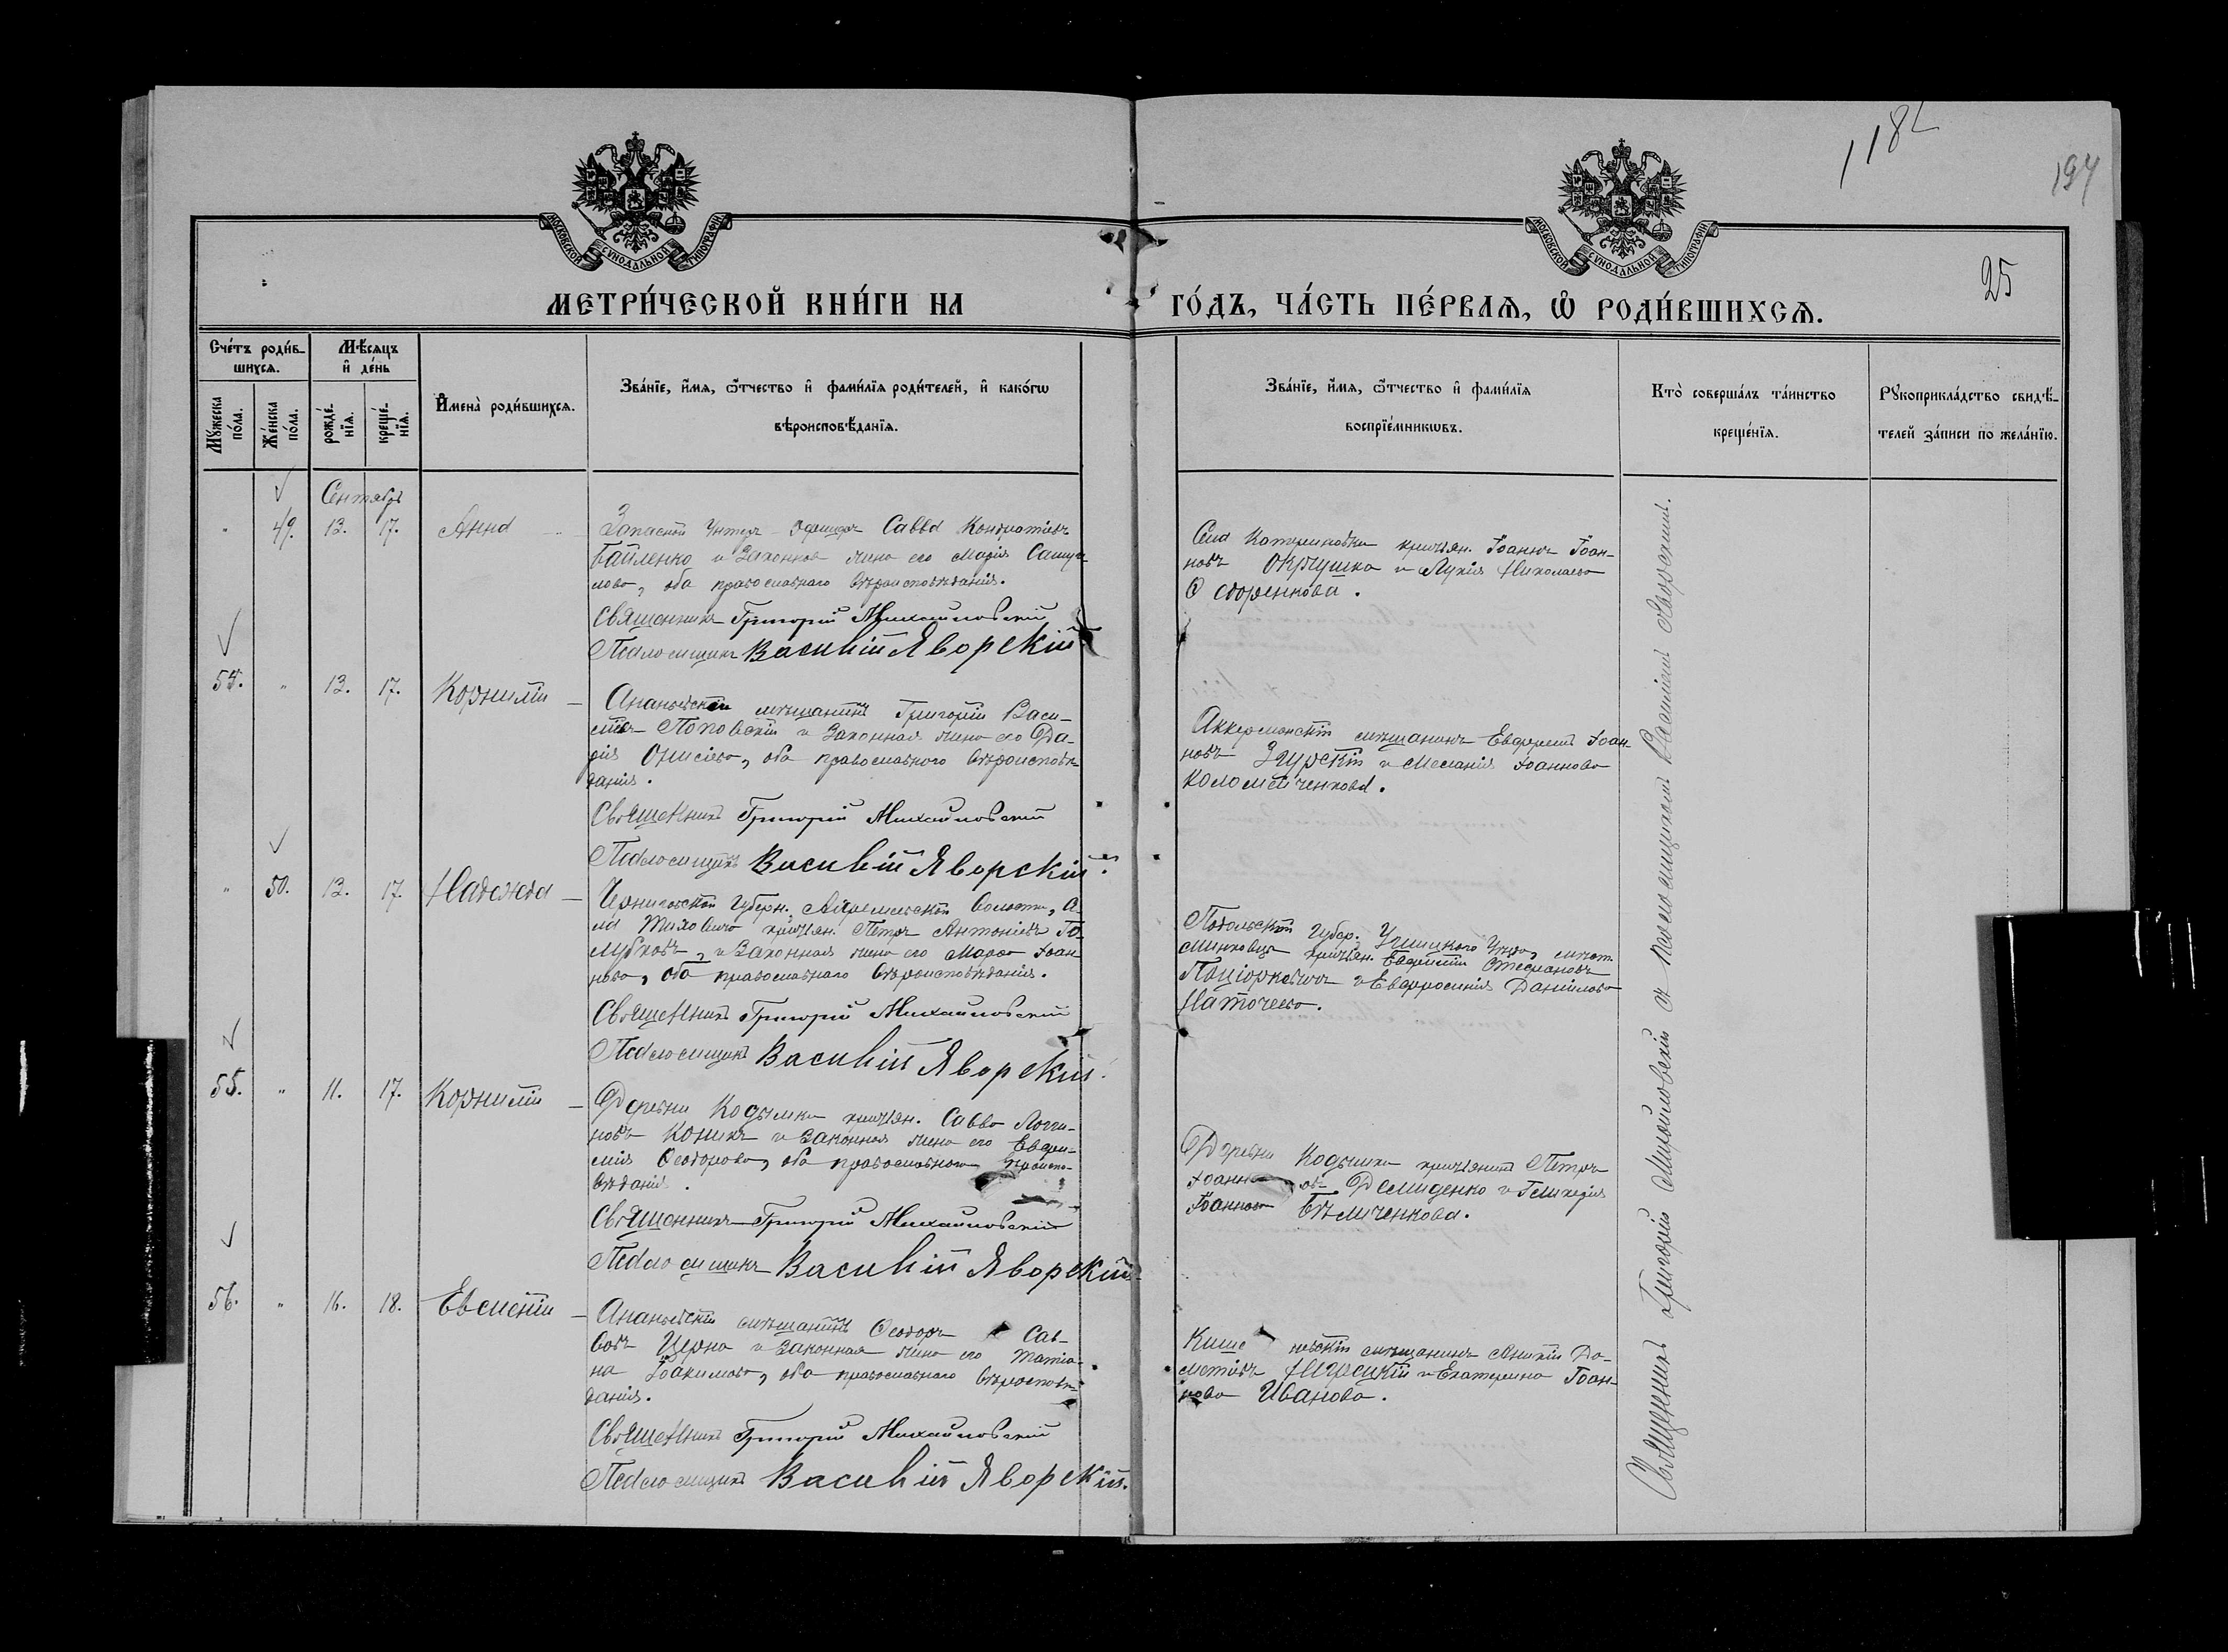 1182
194
25
МОСКОВСКОЙ СѴНОДАЛЬНОЙ ТИПОГРАФІИ
МОСКОВСКОЙ СѴНОДАЛЬНОЙ ТИПОГРАФІИ
МЕТРИ́ЧЕСКОЙ КНИ́ГИ НА
ГО́ДЪ, ЧА́СТЬ ПЕ́РВАѦ, Ѡ РОДИ́ВШИХСѦ.
Сче́тъ роди́в-
шихсѧ.
Мѣ́сѧцъ
и҆ де́нь
Мꙋ́жеска по́ла.
Же́нска по́ла.
рожде́-
нїѧ.
креще́-
нїѧ.
И҆мена̀ роди́вшихсѧ.
Зва́нїе, и҆́мѧ, ѻ҆́тчество и҆ фами́лїѧ роди́телей, и҆ како́гѡ
вѣроисповѣ́данїѧ.
Зва́нїе, и҆́мѧ, ѻ҆́тчество и҆ фами́лїѧ
воспрїе́мникѡвъ.
Кто̀ соверша́лъ та́инство
креще́нїѧ.
Рꙋкоприкла́дство свидѣ́-
телей за́писи по жела́нїю.
Сентябрь
49. 13. 17. Анна
Запасной Унтеръ-Офицеръ Савва Кондратіевъ
Байленко и законная жена его Марія Самуи-
лова, оба православнаго вѣроисповѣданія.
Священникъ Григорій Михайловскій
Псаломщикъ Василій Яворскій
Села Катериновки крестьян. Іоаннъ Іоан-
новъ и Лукія Николаева
Ѳедоренкова.
54. 13. 17. Корнилій
Ананьевскій мѣщанинъ Григорій Васи-
ліевъ Поповскій и законная жена его Да-
рія Онисіева, оба православнаго вѣроисповѣ-
данія.
Священникъ Григорій Михайловскій
Псаломщикъ Василій Яворскій.
Аккерманскій мѣщанинъ Евфремъ Іоан-
новъ Згурскій и Меланія Іоаннова
Коломейченкова.
50. 13. 17. Надежда
Черниговской Губерн. волости,
крестьян. Петръ Антоніевъ Го-
лубковъ, и законная жена его Марѳа Іоан-
нова, оба православнаго вѣроисповѣданія.
Священникъ Григорій Михайловскій
Псаломщикъ Василій Яворскій.
Подольской Губер. Ушицкаго Уѣзда, мѣст.
Миньковецъ крестьян. Евфимій Стефановъ
и Евфросинія Даніилова
55. 11. 17. Корнилій
Деревни Кодымки крестьян. Савва Логги-
новъ Коникъ и законная жена его Евфи-
мія Ѳеодорова, оба православнаго вѣроиспо-
вѣданія.
Священникъ Григорій Михайловскій
Псаломщикъ Василій Яворскій
Деревни Кодымки крестьянинъ Петръ
Іоанновъ Демиденко и Гликерія
Іоаннова Бѣличенкова.
56. 16. 18. Евменій
Ананьевскій мѣщанинъ Ѳеодоръ Сав-
вовъ Церна и законная жена его Татіа-
на Іоакимова, оба православнаго вѣроисповѣ-
данія.
Священникъ Григорій Михайловскій
Псаломщикъ Василій Яворскій.
Кишиневскій мѣщанинъ
и Екатерина Іоан-
нова Иванова.
Священникъ Григорій Михайловскій и псаломщикомъ Василіемъ Яворскимъ.